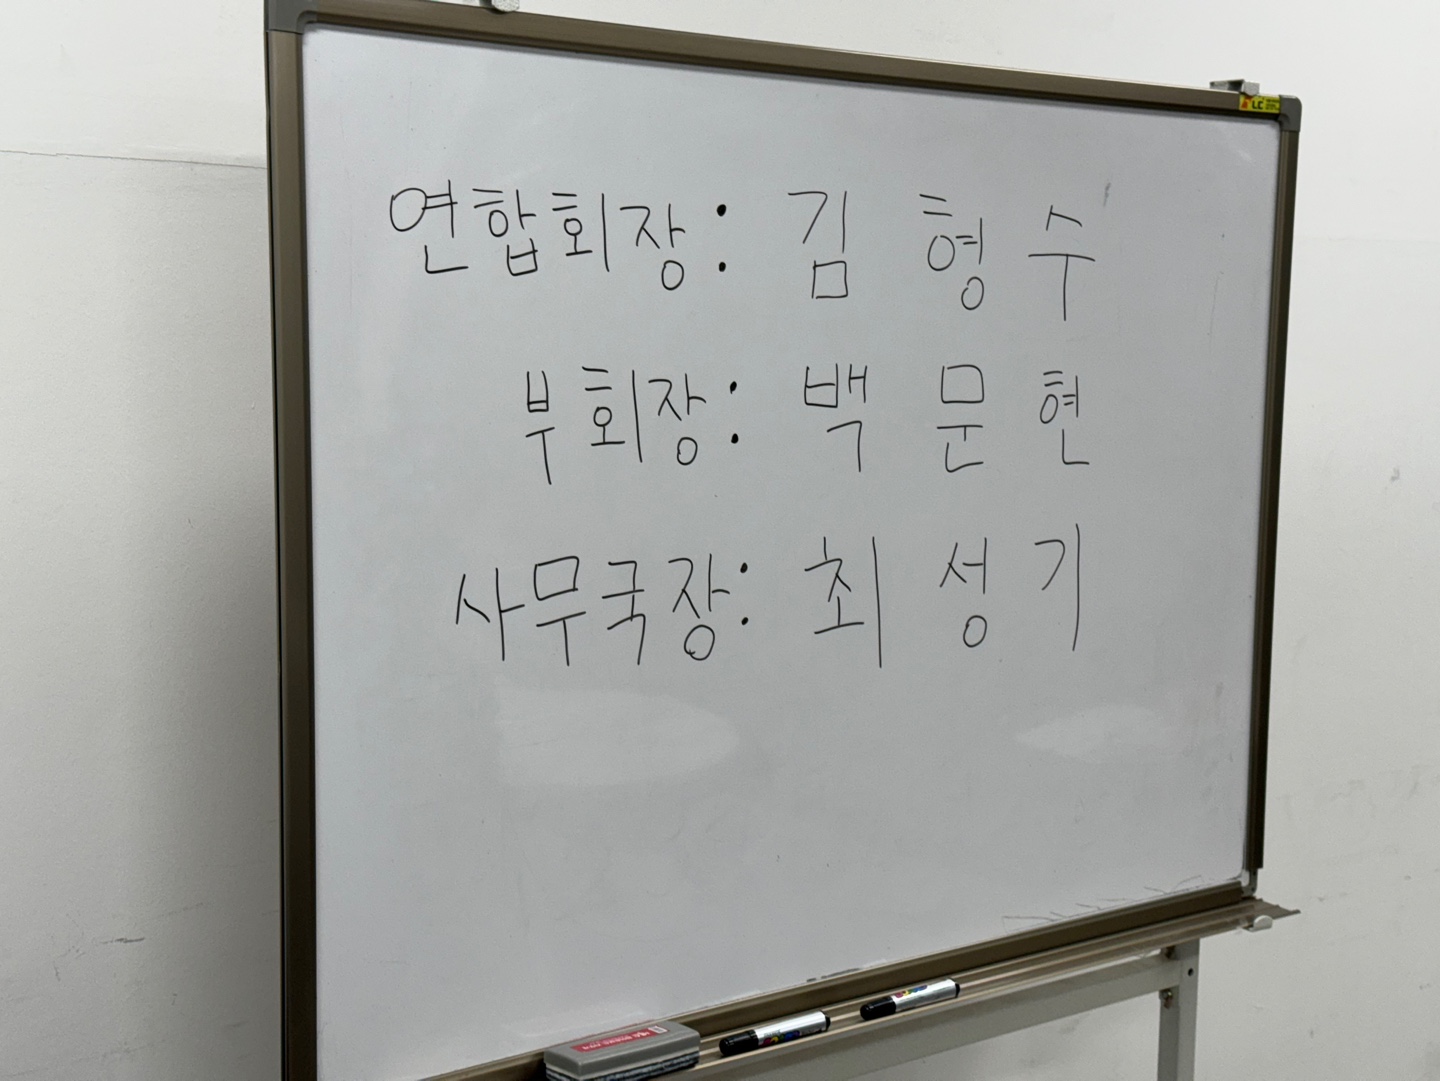 연합회장: 김 형 수
부회장: 백 문 현
사무국장: 최 성 기
LC